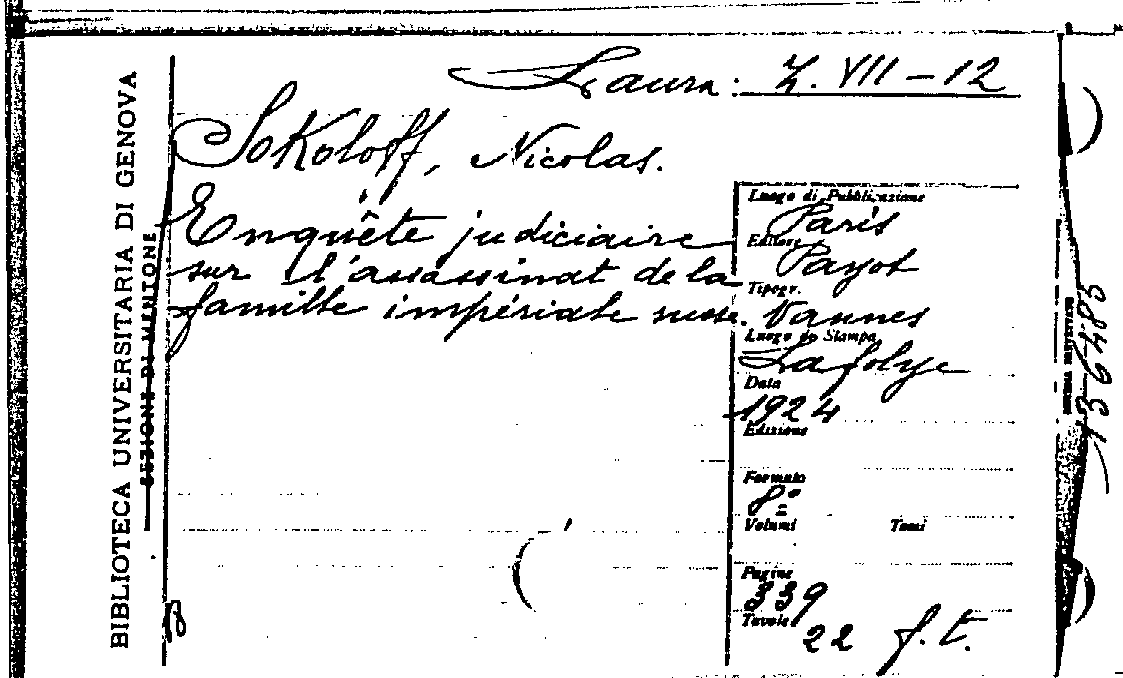 Laura: Z. VII - 12
Sokoloff, Nicolas.
Enquête judiciaire
sur l'assassinat de la
famille impériale russe.
Luogo di Pubblicazione
Paris
Editore
Payot
Tipogr.
Vannes
Luogo di Stampa
Lafolye
Data
1924
Edizione
Formato
8º
Volumi Tomi
Pagine
339
Tavole
22 f. t.
BIBLIOTECA UNIVERSITARIA DI GENOVA
SEZIONE DI
136485